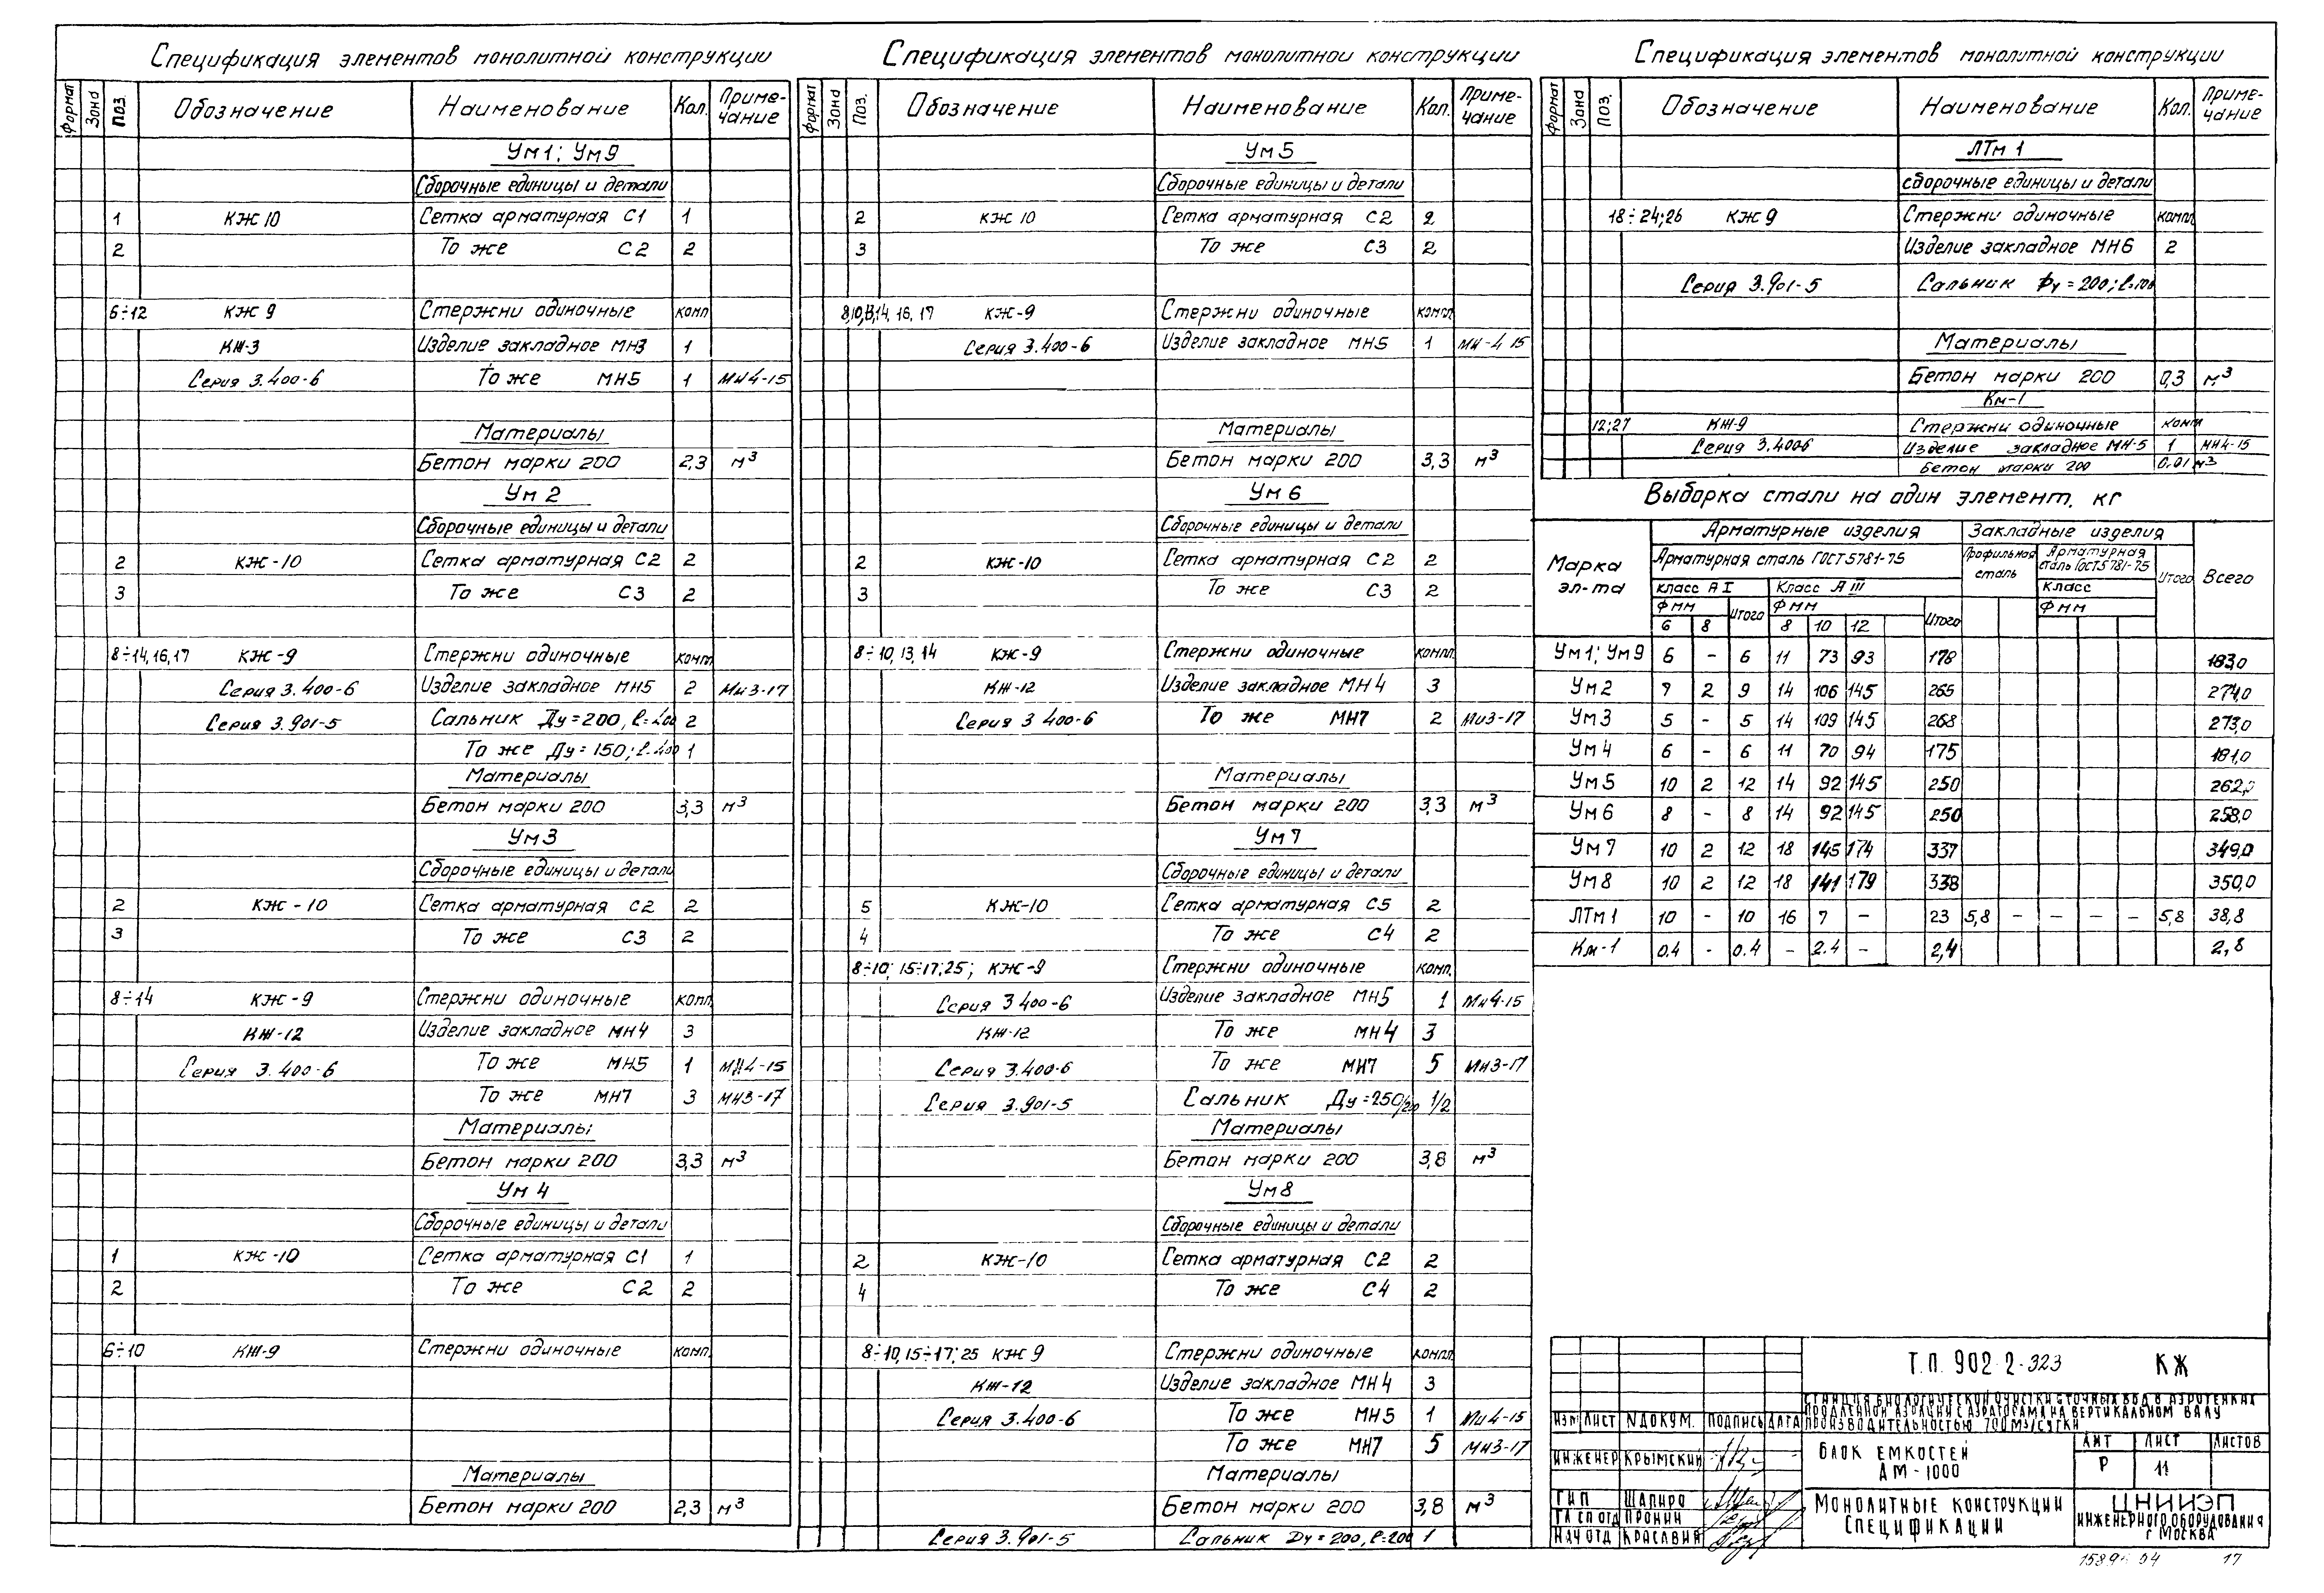 Спецификация элементов монолитной конструкции
Формат Зона Поз. Обозначение Наименование Кол. Приме-чание
Ум1; Ум9
Сборочные единицы и детали
1 КЖ 10 Сетка арматурная С1 1
2 То же С2 2
6÷12 КЖ 9 Стержни одиночные комп
КЖ-3 Изделие закладное МН3 1
Серия 3.400-6 То же МН5 1 МН4-15
Материалы
Бетон марки 200 2,3 м³
Ум 2
Сборочные единицы и детали
2 КЖ-10 Сетка арматурная С2 2
3 То же С3 2
8÷14,16,17 КЖ-9 Стержни одиночные компл.
Серия 3.400-6 Изделие закладное МН5 2 МН3-17
Серия 3.901-5 Сальник Ду=200, ℓ=200 2
То же Ду=150; ℓ.400 1
Материалы
Бетон марки 200 3,3 м³
Ум3
Сборочные единицы и детали
2 КЖ-10 Сетка арматурная С2 2
3 То же С3 2
8÷14 КЖ-9 Стержни одиночные компл.
КЖ-12 Изделие закладное МН4 3
Серия 3.400-6 То же МН5 1 МН4-15
То же МН7 3 МН3-17
Материалы
Бетон марки 200 3,3 м³
Ум 4
Сборочные единицы и детали
1 КЖ-10 Сетка арматурная С1 1
2 То же С2 2
6÷10 КЖ-9 Стержни одиночные комп.
Материалы
Бетон марки 200 2,3 м³
Спецификация элементов монолитной конструкции
Формат Зона Поз. Обозначение Наименование Кол. Приме-чание
Ум5
Сборочные единицы и детали
2 КЖ 10 Сетка арматурная С2 2
3 То же С3 2
8,10,13,14, 16, 17 КЖ-9 Стержни одиночные компл
Серия 3.400-6 Изделие закладное МН5 1 МН-4 15
Материалы
Бетон марки 200 3,3 м³
Ум 6
Сборочные единицы и детали
2 КЖ-10 Сетка арматурная С2 2
3 То же С3 2
8÷10, 13, 14 КЖ-9 Стержни одиночные компл.
КЖ-12 Изделие закладное МН4 3
Серия 3 400-6 То же МН7 2 МН3-17
Материалы
Бетон марки 200 3,3 м³
Ум7
Сборочные единицы и детали
5 КЖ-10 Сетка арматурная С5 2
4 То же С4 2
8÷10; 15÷17; 25; КЖ-9 Стержни одиночные комп.
Серия 3 400-6 Изделие закладное МН5 1 МН4-15
КЖ-12 То же МН4 3
Серия 3.400-6 То же МН7 5 МН3-17
Серия 3.901-5 Сальник Ду=250/200 1/2
Материалы
Бетон марки 200 3,8 м³
Ум8
Сборочные единицы и детали
2 КЖ-10 Сетка арматурная С2 2
4 То же С4 2
8÷10, 15÷17; 25 КЖ 9 Стержни одиночные компл
КЖ-12 Изделие закладное МН4 3
Серия 3.400-6 То же МН5 1 МН4-15
То же МН7 5 МН3-17
Материалы
Бетон марки 200 3,8 м³
Серия 3.901-5 Сальник Ду=200, ℓ=200 1
Спецификация элементов монолитной конструкции
Формат Зона Поз. Обозначение Наименование Кол. Приме-чание
ЛТм 1
Сборочные единицы и детали
18÷24;26 КЖ 9 Стержни одиночные компл
Изделие закладное МН6 2
Серия 3.901-5 Сальник Фу=200;
Материалы
Бетон марки 200 0,3 м³
Км-1
12;27 КЖ-9 Стержни одиночные комп
Серия 3.400-6 Изделие закладное МН-5 1 МН4-15
Бетон марки 200 0,01 м³
Выборка стали на один элемент, кг
Марка эл-та Арматурные изделия Закладные изделия Всего
Арматурная сталь ГОСТ 5781-75 Профильная сталь Арматурная сталь ГОСТ 5781-75 Итого
Класс А I Класс А III Класс
Ф мм Итого Ф мм Итого Ф мм
6 8 8 10 12
Ум1; Ум9 6 - 6 11 73 93 178 183,0
Ум2 7 2 9 14 106 145 265 274,0
Ум3 5 - 5 14 109 145 268 273,0
Ум4 6 - 6 11 70 94 175 181,0
Ум5 10 2 12 14 92 145 250 262,0
Ум6 8 - 8 14 92 145 250 258,0
Ум7 10 2 12 18 145 174 337 349,0
Ум8 10 2 12 18 141 179 338 350,0
ЛТм1 10 - 10 16 7 - 23 5,8 - - - - 5,8 38,8
Км-1 0.4 - 0.4 - 2.4 - 2,4 2,8
Т.П. 902-2-323 КЖ
СТАНЦИЯ БИОЛОГИЧЕСКОЙ ОЧИСТКИ СТОЧНЫХ ВОД В АЭРОТЕНКАХ
ПРОДЛЕННОЙ АЭРАЦИИ С АЭРАТОРАМИ НА ВЕРТИКАЛЬНОМ ВАЛУ
ПРОИЗВОДИТЕЛЬНОСТЬЮ 700 М3/СУТКИ
ИЗМ ЛИСТ N ДОКУМ. ПОДПИСЬ ДАТА
ИНЖЕНЕР КРЫМСКИЙ
ГИП ШАПИРО
ГЛ СП ОТД ПРОНИН
НАЧ ОТД КРАСАВИН
БЛОК ЕМКОСТЕЙ
АМ-1000
ЛИТ ЛИСТ ЛИСТОВ
Р 11
МОНОЛИТНЫЕ КОНСТРУКЦИИ
СПЕЦИФИКАЦИИ
ЦНИИЭП
ИНЖЕНЕРНОГО ОБОРУДОВАНИЯ
Г МОСКВА
04 17